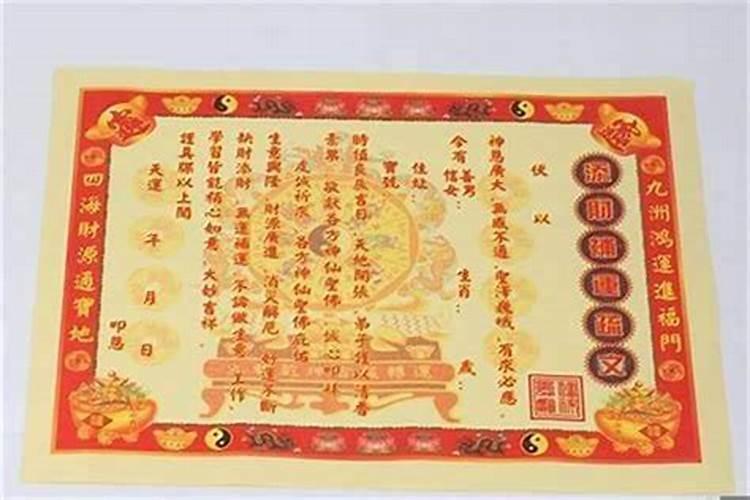 九洲鴻運進福門
添財補運疏文
伏以
神恩廣大 無感不通 聖澤巍峨 有求必應
今有 善男 信女 ： 生肖： 歲：
住址：
寶號：
時值良辰吉日 天地開張 弟子僅以清香
素果 敬獻各方神仙聖佛 誠心叩拜
虔誠祈求 各方神仙聖佛庇佑
生意興隆 財源廣進 消災解厄 好運不斷
缺財添財 無運補運 不論做生意 工作、
學習皆能稱心如意 大妙吉祥
謹具疏以上聞
天運 年 月 日
叩恩
四海財源通寶地